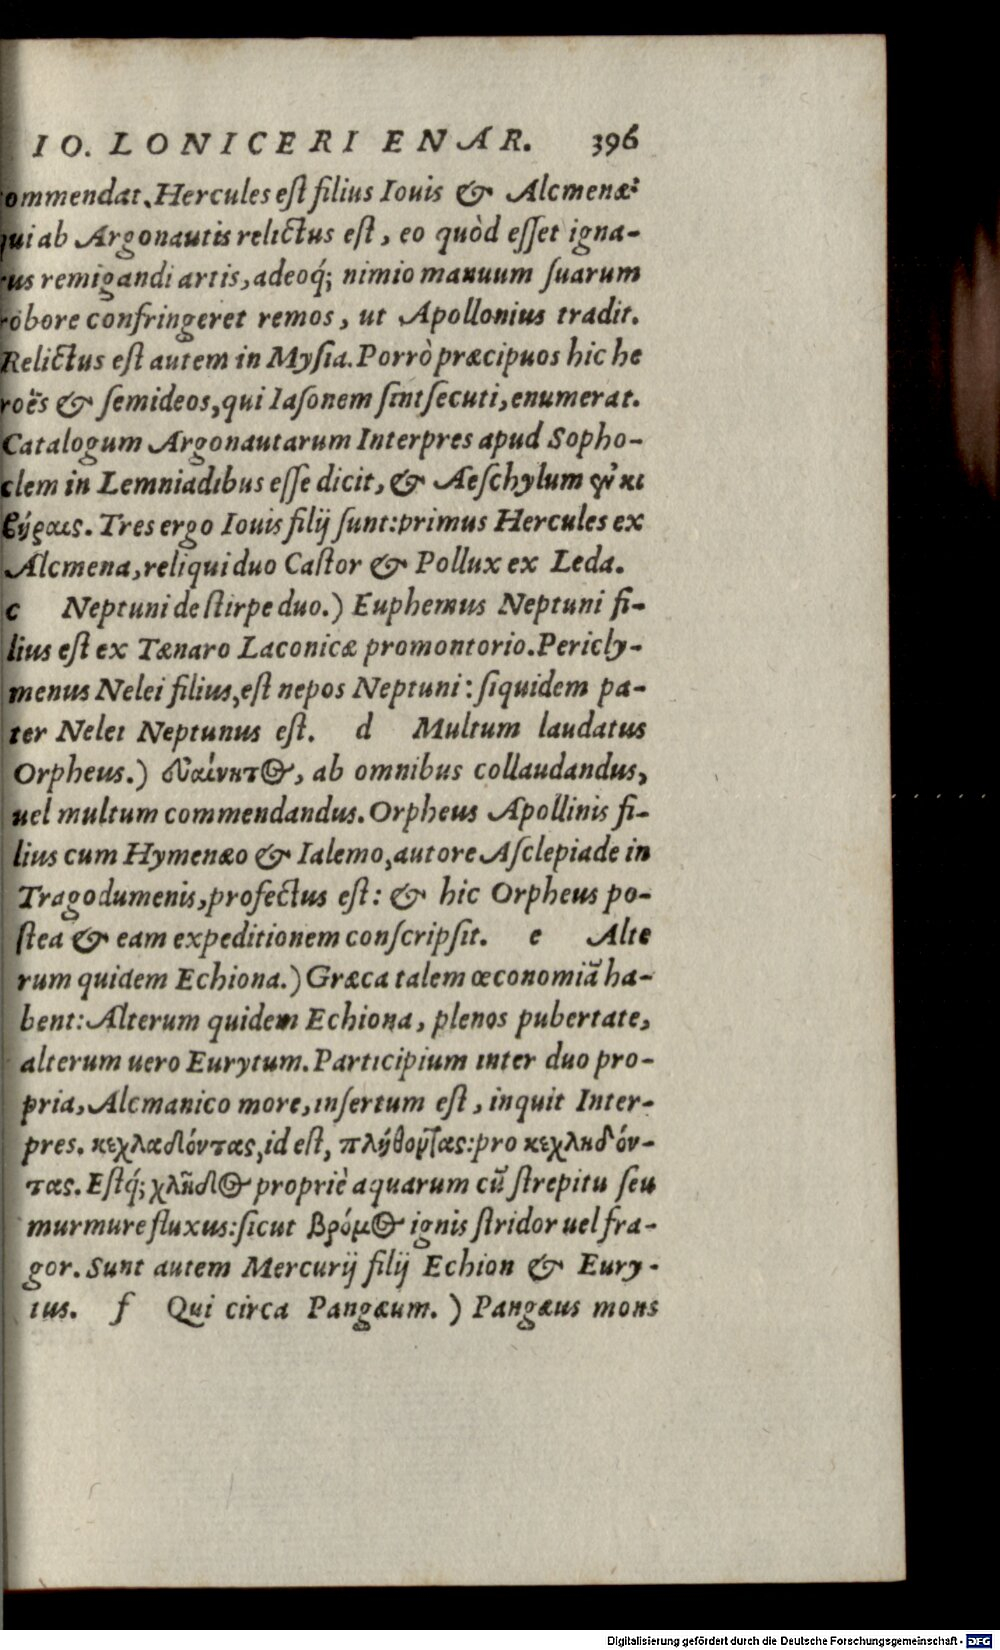 IO. LONICERI ENAR. 396
ommendat. Hercules eſt filius Iouis & Alcmenæ:
qui ab Argonautis relictus eſt, eo quòd eſſet igna-
rus remigandi artis, adeoq́; nimio manuum ſuarum
robore confringeret remos, ut Apollonius tradit.
Relictus eſt autem in Myſia. Porrò præcipuos hic he
roës & ſemideos, qui Iaſonem ſint ſecuti, enumerat.
Catalogum Argonautarum Interpres apud Sopho-
clem in Lemniadibus eſſe dicit, & Aeſchylum ἐν κα
βήραις. Tres ergo Iouis filij ſunt: primus Hercules ex
Alcmena, reliqui duo Caſtor & Pollux ex Leda.
c Neptuni de ſtirpe duo.) Euphemus Neptuni fi-
lius eſt ex Tænaro Laconicæ promontorio. Pericly-
menus Nelei filius, eſt nepos Neptuni: ſiquidem pa-
ter Nelei Neptunus eſt. d Multum laudatus
Orpheus.) εὐαίνητος, ab omnibus collaudandus,
uel multum commendandus. Orpheus Apollinis fi-
lius cum Hymenæo & Ialemo, autore Aſclepiade in
Tragodumenis, profectus eſt: & hic Orpheus po-
ſtea & eam expeditionem conſcripſit. e Alte
rum quidem Echiona.) Græca talem œconomiã ha-
bent: Alterum quidem Echiona, plenos pubertate,
alterum uero Eurytum. Participium inter duo pro-
pria, Alcmanico more, inſertum eſt, inquit Inter-
pres. κεχλαδόντας, id eſt, πλήθοντας: pro κεχληδόν-
τας. Eſtq́; χλῆδος propriè aquarum cũ ſtrepitu ſeu
murmure fluxus: ſicut βρόμος ignis ſtridor uel fra-
gor. Sunt autem Mercurij filij Echion & Eury-
tus. f Qui circa Pangæum.) Pangæus mons
Digitalisierung gefördert durch die Deutsche Forschungsgemeinschaft - DFG